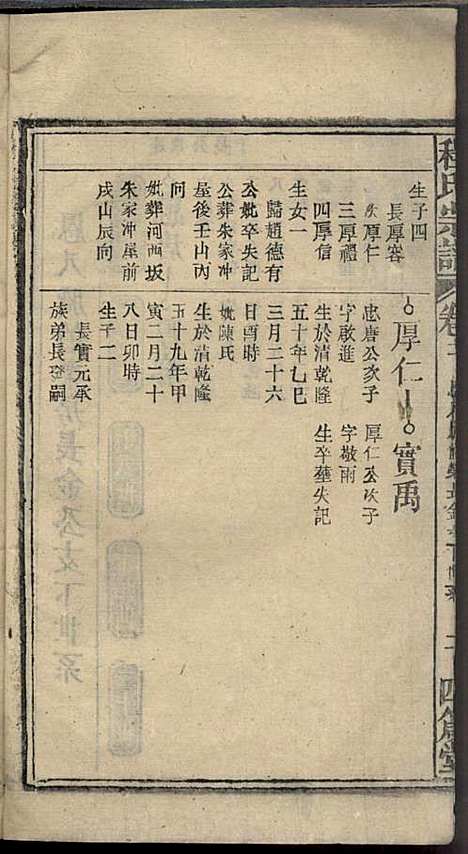 氏宗譜
卷
生子四
長厚容
次厚仁
三厚禮
四厚信
生女一
歸趙德有
公妣卒失記
公葬朱家冲
屋後壬山丙
向
妣葬河西坂
朱家冲屋前
戌山辰向
厚仁
忠唐公次子
字啟進
生於清乾隆
五十年乙巳
三月二十六
日酉時
妣陳氏
生於清乾隆
五十九年甲
寅二月二十
八日卯時
生子二
長實元承
族弟長登嗣
實禹
厚仁公次子
字敬雨
生卒塟失記